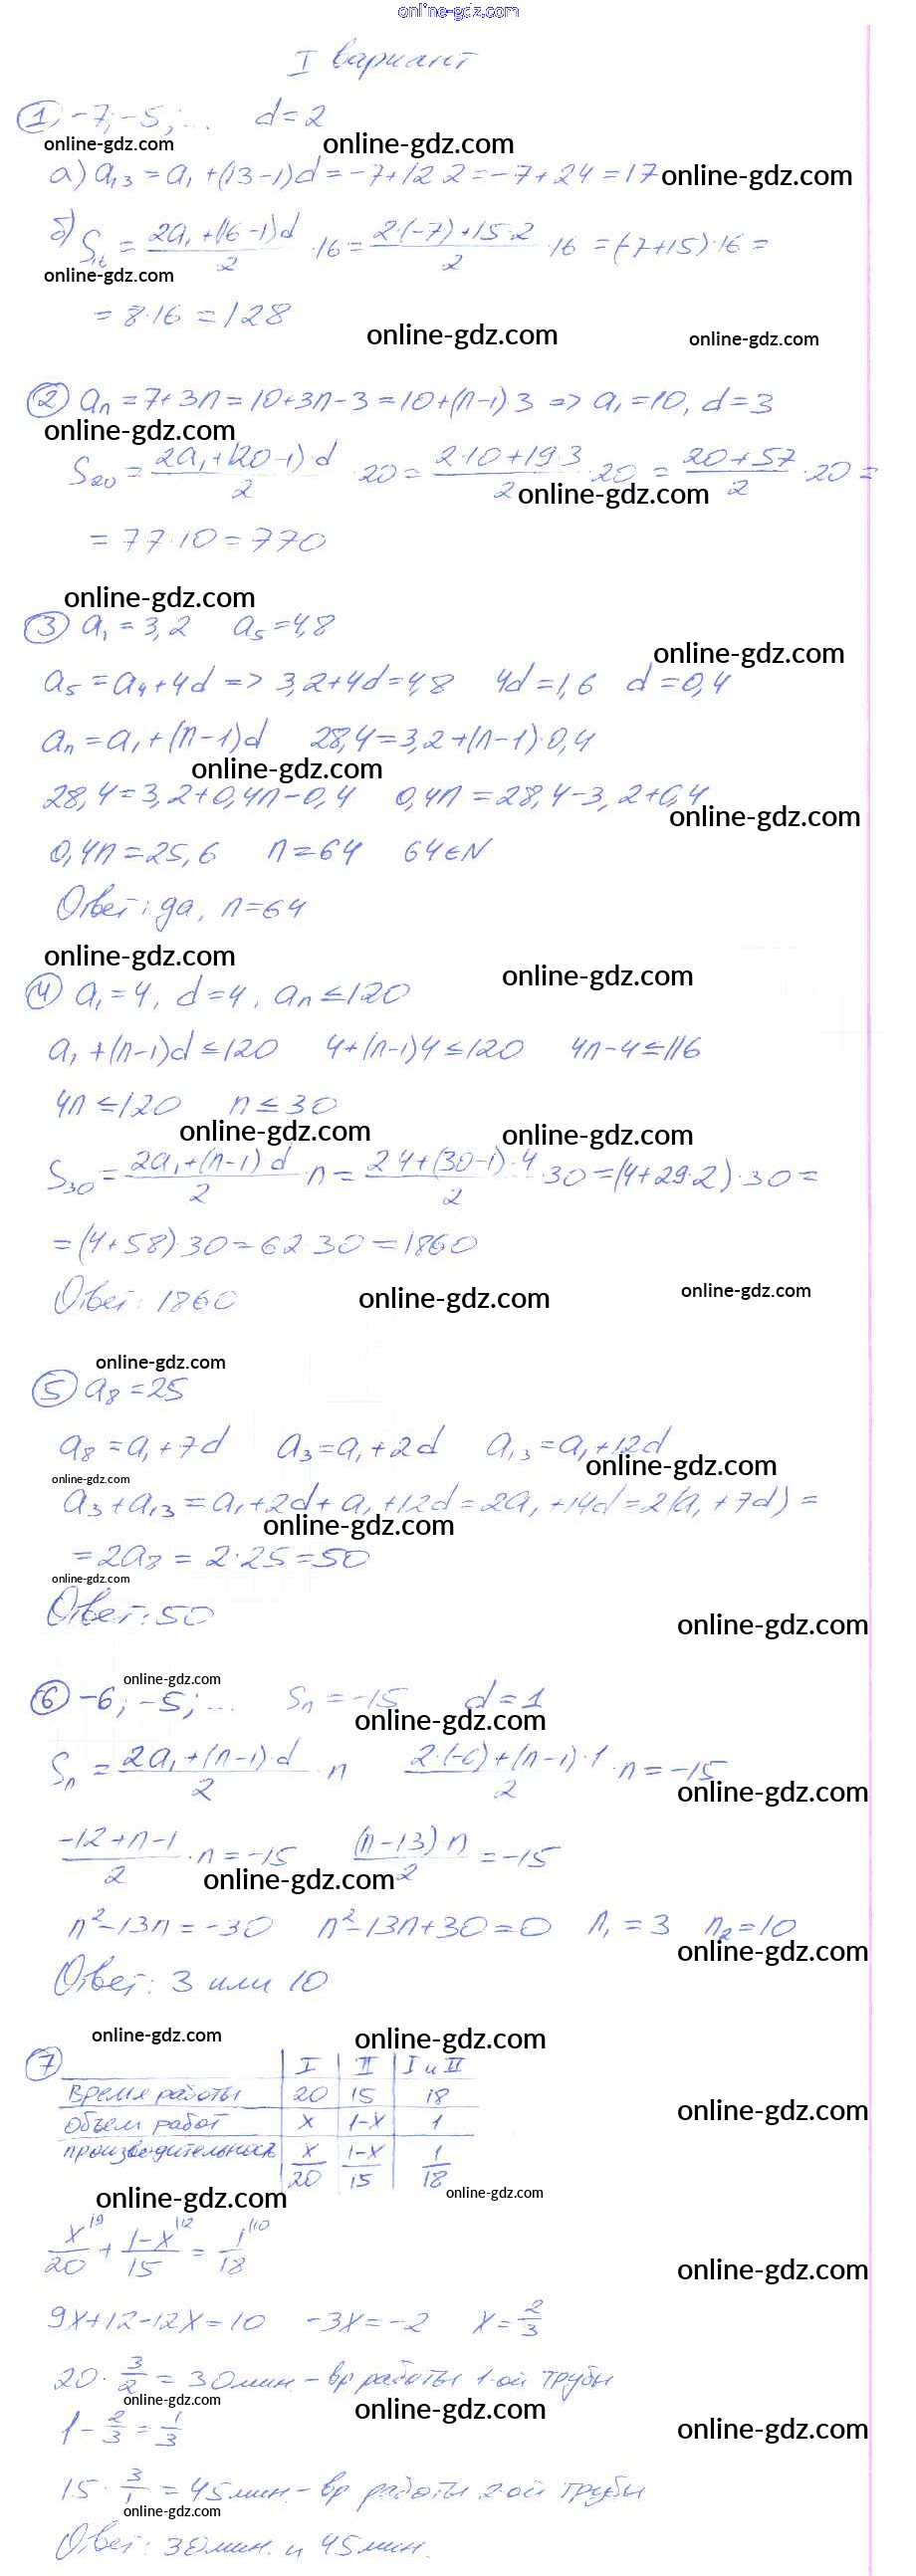 online-gdz.com
I вариант
① -7; -5; ... d=2
online-gdz.com online-gdz.com
а) a₁₃ = a₁ + (13-1)d = -7+12·2 = -7+24 = 17 online-gdz.com
б) S₁₆ = (2a₁+(16-1)d)/2 ·16 = (2·(-7)+15·2)/2 ·16 = (-7+15)·16 =
online-gdz.com
= 8·16 = 128
online-gdz.com online-gdz.com
② aₙ = 7+3n = 10+3n-3 = 10+(n-1)3 => a₁=10, d=3
online-gdz.com
S₂₀ = (2a₁+(20-1)·d)/2 ·20 = (2·10+19·3)/2 ·20 = (20+57)/2 ·20 =
online-gdz.com
= 77·10 = 770
online-gdz.com
③ a₁=3,2 a₅=4,8
online-gdz.com
a₅ = a₄+4d => 3,2+4d=4,8 4d=1,6 d=0,4
aₙ = a₁+(n-1)d 28,4=3,2+(n-1)·0,4
online-gdz.com
28,4=3,2+0,4n-0,4 0,4n=28,4-3,2+0,4
online-gdz.com
0,4n=25,6 n=64 64∈N
Ответ: да, n=64
online-gdz.com online-gdz.com
④ a₁=4, d=4, aₙ≤120
a₁+(n-1)d≤120 4+(n-1)4≤120 4n-4≤116
4n≤120 n≤30
online-gdz.com online-gdz.com
S₃₀ = (2a₁+(n-1)d)/2 ·n = (2·4+(30-1)·4)/2 ·30 = (4+29·2)·30 =
= (4+58)·30 = 62·30 = 1860
Ответ: 1860
online-gdz.com online-gdz.com
online-gdz.com
⑤ a₈=25
a₈ = a₁+7d a₃=a₁+2d a₁₃=a₁+12d
online-gdz.com
online-gdz.com
a₃+a₁₃ = a₁+2d+a₁+12d = 2a₁+14d = 2(a₁+7d) =
online-gdz.com
= 2a₈ = 2·25 = 50
online-gdz.com
Ответ: 50
online-gdz.com
online-gdz.com
⑥ -6; -5; ... Sₙ=-15 d=1
online-gdz.com
Sₙ = (2a₁+(n-1)·d)/2 ·n (2·(-6)+(n-1)·1)/2 ·n = -15
online-gdz.com
(-12+n-1)/2 ·n = -15 ((n-13)·n)/2 = -15
online-gdz.com
n²-13n=-30 n²-13n+30=0 n₁=3 n₂=10
online-gdz.com
Ответ: 3 или 10
online-gdz.com online-gdz.com
⑦ I II I и II
время работы 20 15 18
объем работ x 1-x 1
online-gdz.com
производительность x/20 (1-x)/15 1/18
online-gdz.com online-gdz.com
x/20 |9 + (1-x)/15 |12 = 1/18 |10
online-gdz.com
9x+12-12x=10 -3x=-2 x=2/3
20·3/2=30 мин. - вр работы 1-ой трубы
online-gdz.com online-gdz.com
1-2/3=1/3
online-gdz.com
15·3/1=45 мин. - вр работы 2-ой трубы
online-gdz.com
Ответ: 30 мин. и 45 мин.